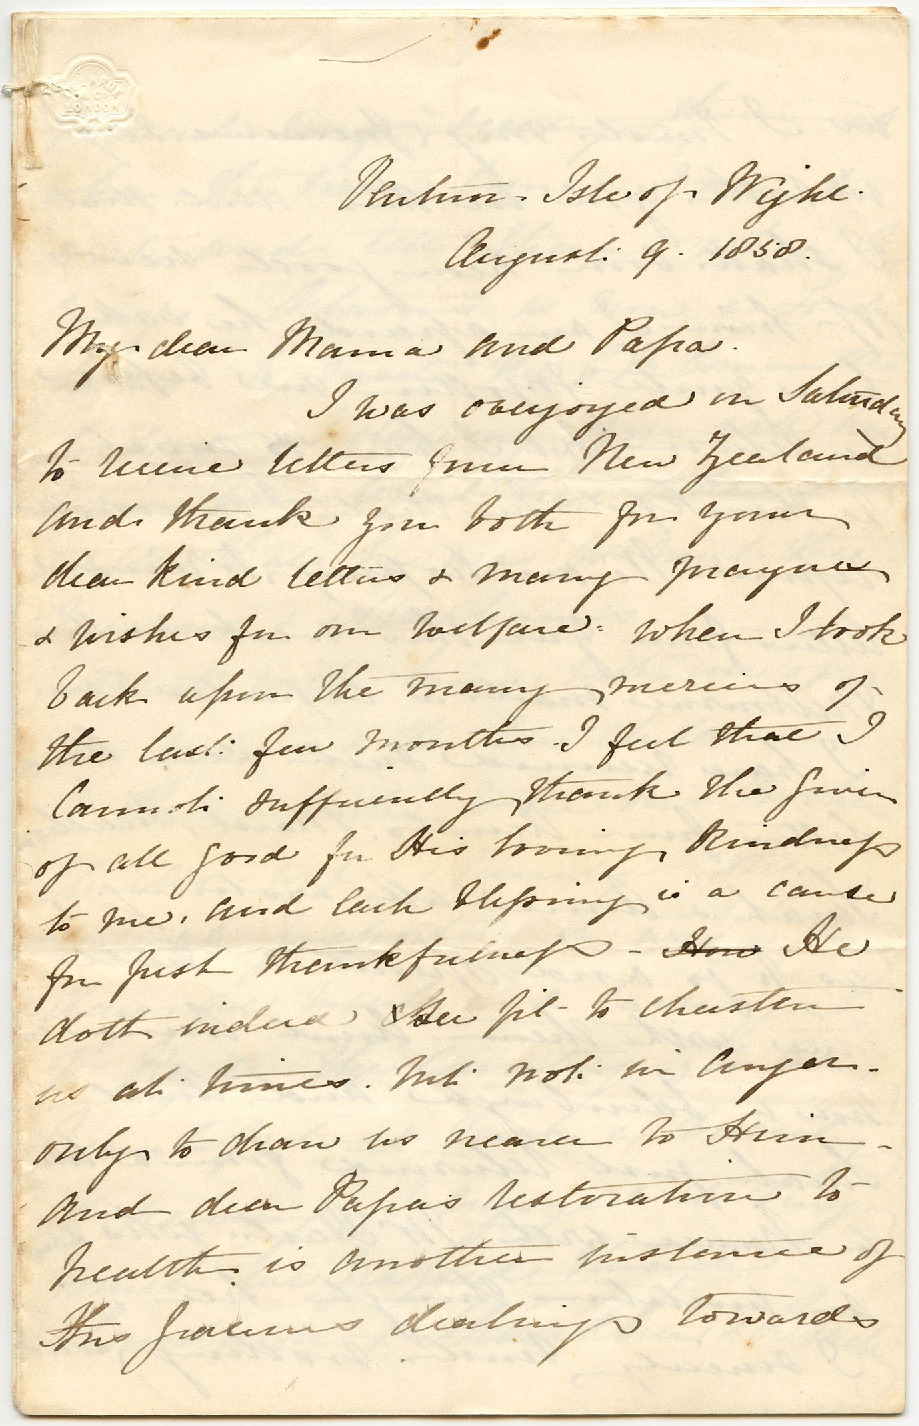 LONDON
Ventnor - Isle of Wight.
August 9. 1858.
My dear Mama and Papa.
I was overjoyed on Saturday
to receive letters from New Zealand
and thank you both for your
dear kind letters & many prayers
& wishes for our welfare: when I look
back upon the many mercies of
the last few months - I feel that I
cannot sufficiently thank the giver
of all good for His loving kindness
to me, and each blessing is a cause
for just thankfulness - How He
doth indeed see fit to chasten
us at times. but not in anger -
only to draw us nearer to Him -
And dear Papa's restoration to
health is another instance of
His gracious dealings towards